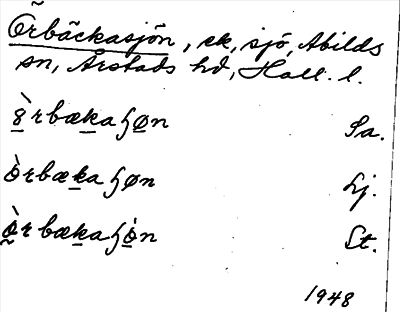 Örbäckasjön, ek, sjö, Abilds
sn, Årstads hd, Hall. l.
ò̱rbæḵaɧø̱n Sa.
òrbæḵaɧøn Lj.
ò̰rbæḵaɧò̱n St.
1948